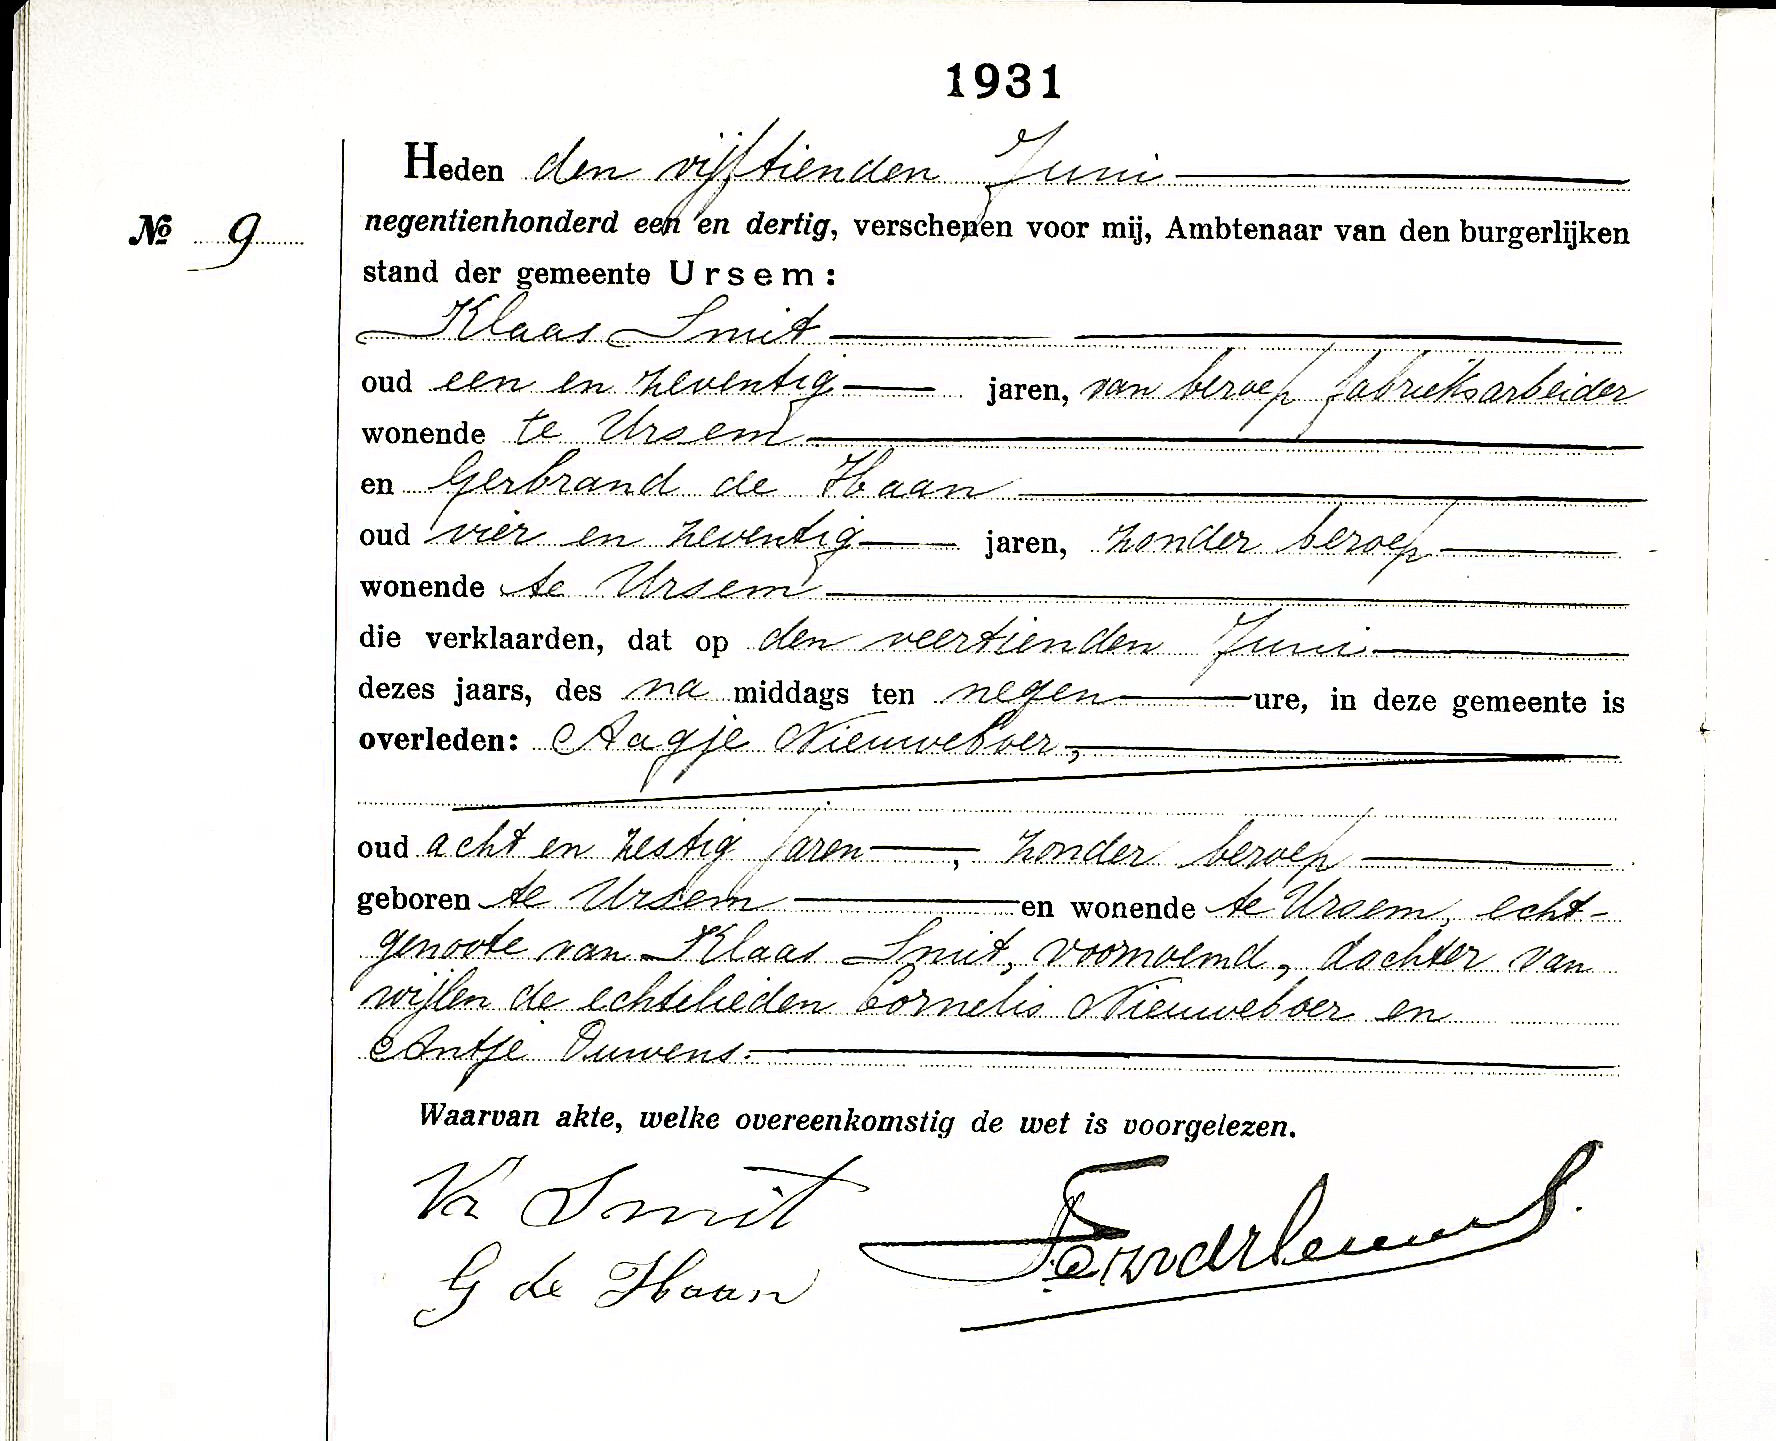 1931
Heden den vijftienden Juni
№ 9
negentienhonderd een en dertig, verschenen voor mij, Ambtenaar van den burgerlijken
stand der gemeente Ursem:
Klaas Smit
oud een en zeventig jaren, van beroep fabrieksarbeider
wonende te Ursem
en Gerbrand de Haan
oud vier en zeventig jaren, zonder beroep
wonende te Ursem
die verklaarden, dat op den veertienden Juni
dezes jaars, des na middags ten negen ure, in deze gemeente is
overleden: Aagje Nieuweboer,
oud acht en zestig jaren, zonder beroep
geboren te Ursem en wonende te Ursem, echt-
genoote van Klaas Smit, voornoemd, dochter van
wijlen de echtelieden Cornelis Nieuweboer en
Antje Ouwens.
Waarvan akte, welke overeenkomstig de wet is voorgelezen.
K Smit
G de Haan